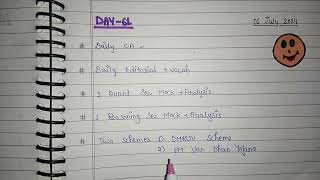 DAY-61
01 July 2024
# Daily CA.
# Daily Editorial + Vocab
# 1 Quant Sec Mock + Analysis
# 1 Reasoning Sec Mock + Analysis
# Two Schemes 1) Scheme
2) PM Van Dhan Yojana